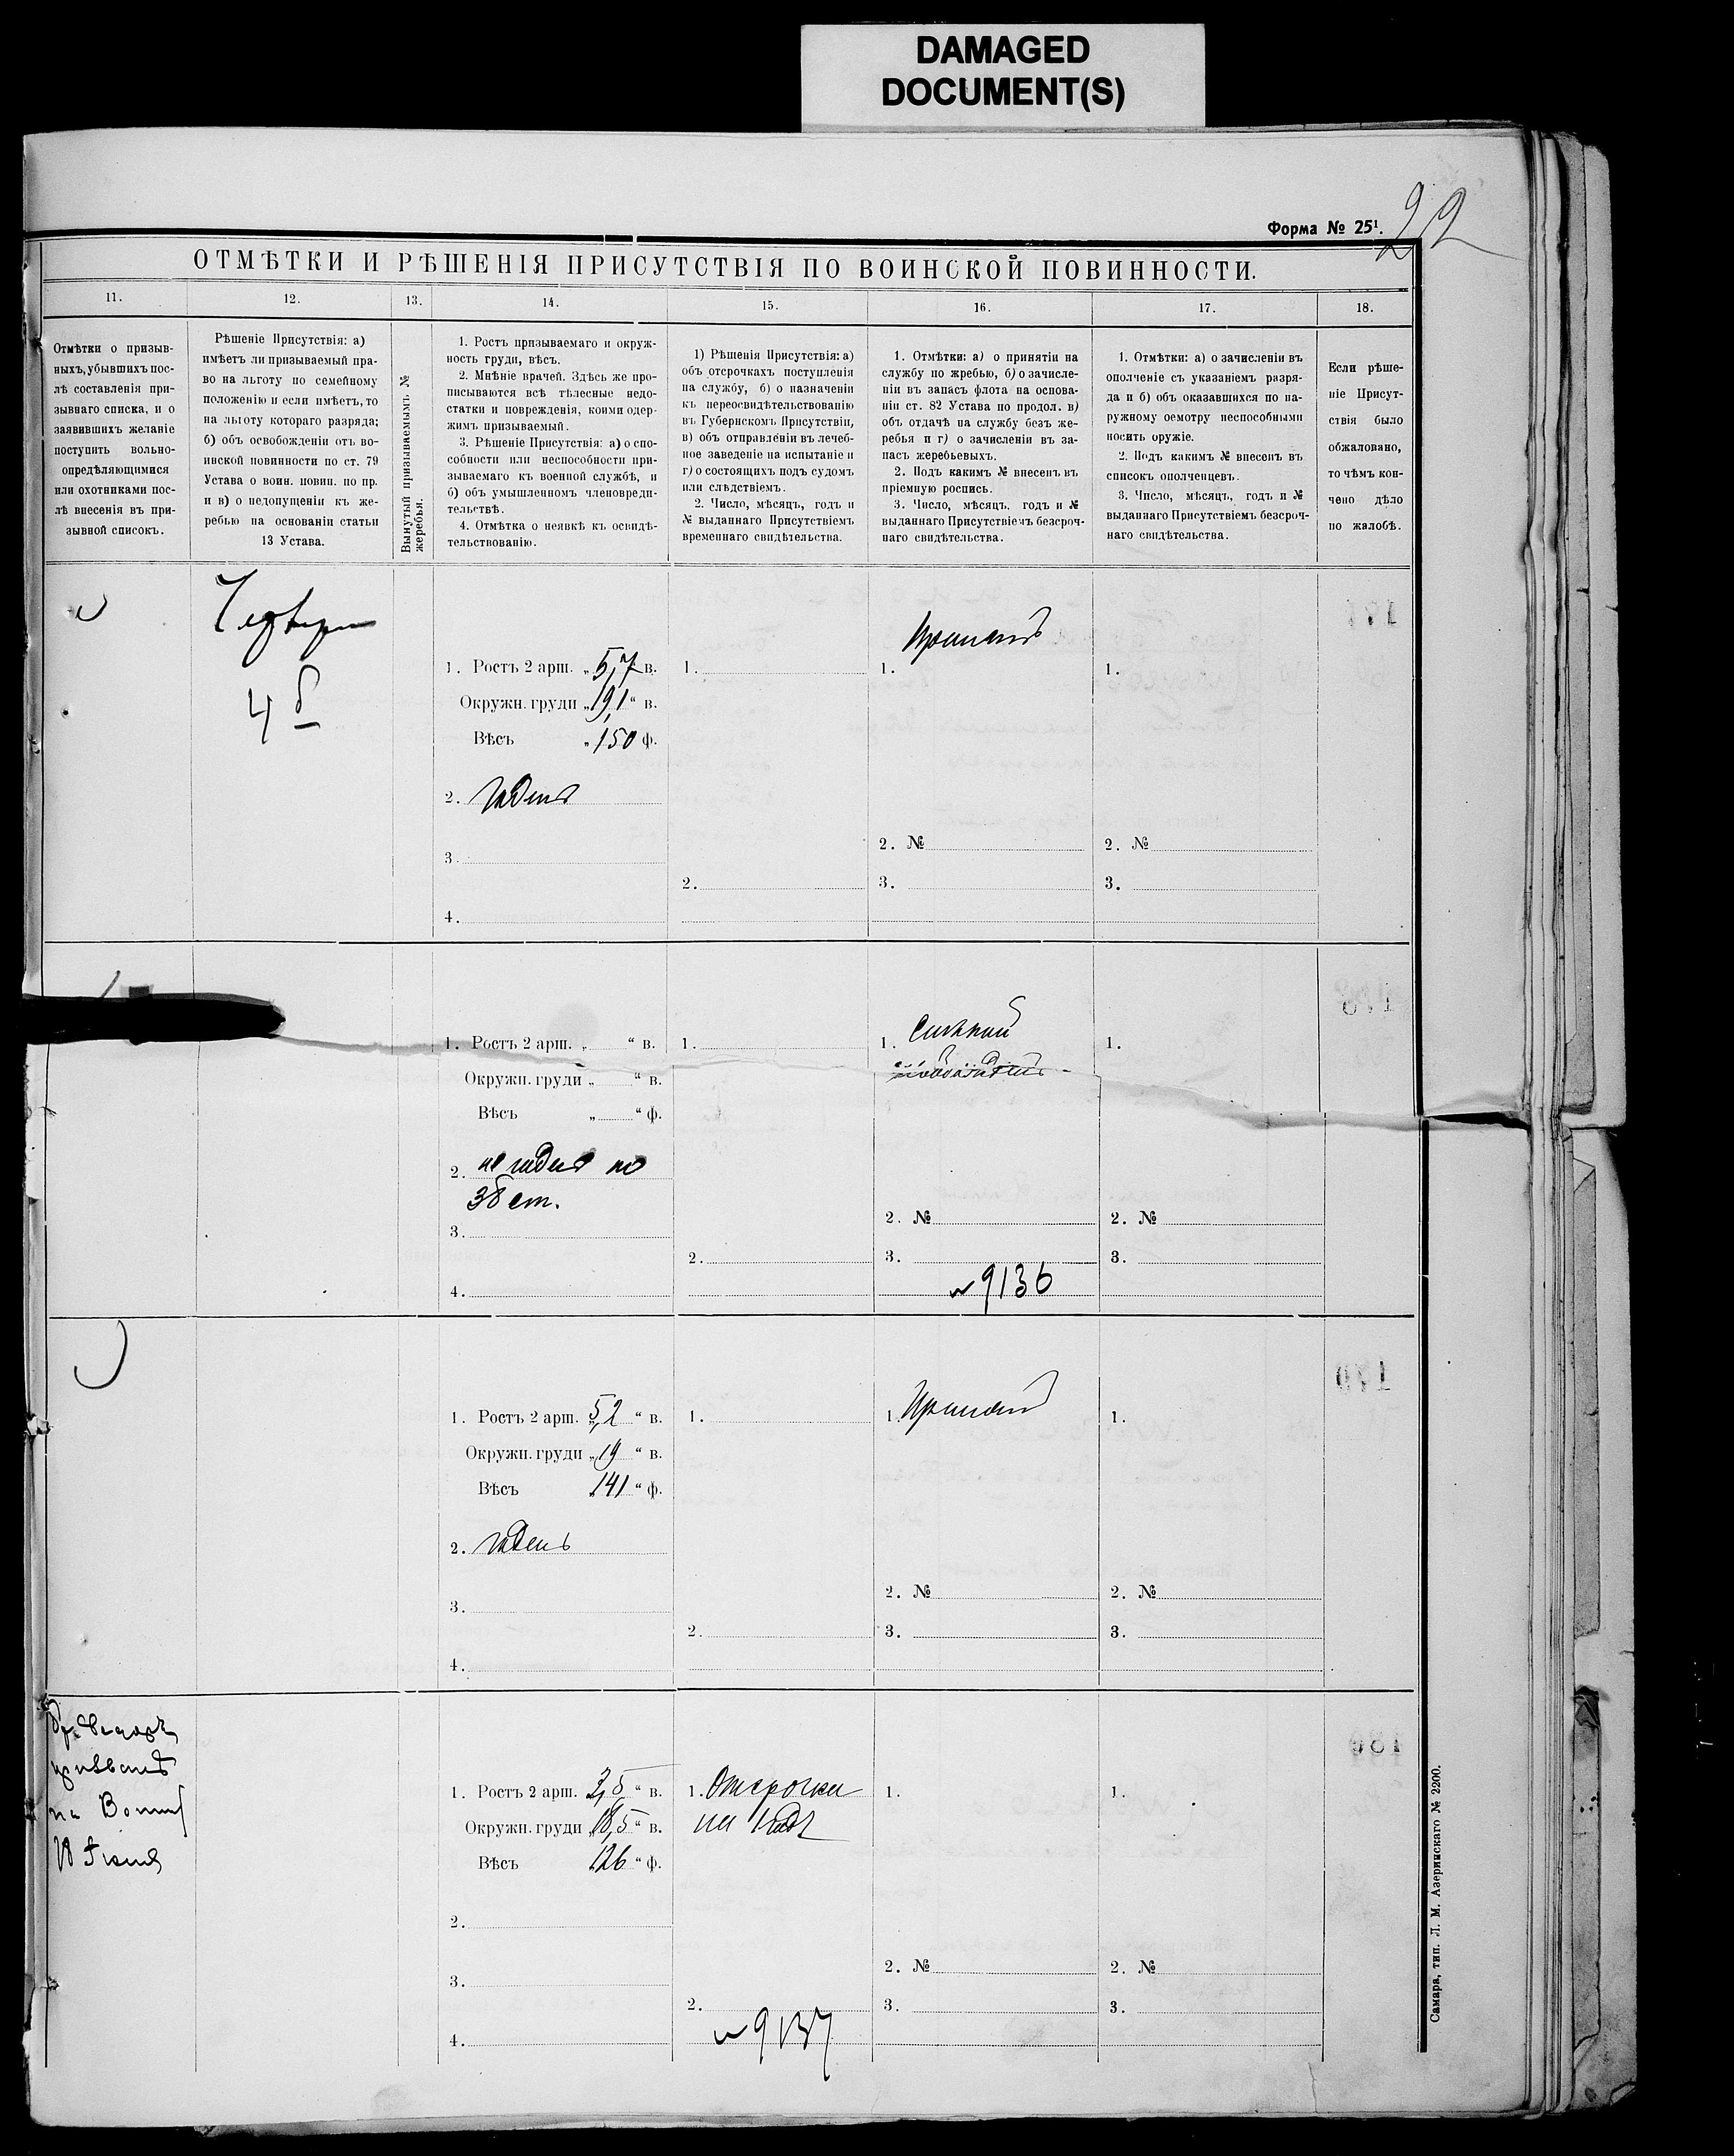 DAMAGED
DOCUMENT(S)
22
Форма № 25¹.
ОТМѢТКИ И РѢШЕНІЯ ПРИСУТСТВІЯ ПО ВОИНСКОЙ ПОВИННОСТИ.
11.
12.
13.
14.
15.
16.
17.
18.
Отмѣтки о призыв-
ныхъ, убывшихъ пос-
лѣ составленія при-
зывнаго списка, и о
заявившихъ желаніе
поступить вольно-
опредѣляющимися
или охотниками пос-
лѣ внесенія въ при-
зывной списокъ.
Рѣшеніе Присутствія: а)
имѣетъ ли призываемый пра-
во на льготу по семейному
положенію и если имѣетъ, то
на льготу котораго разряда;
б) объ освобожденіи отъ во-
инской повинности по ст. 79
Устава о воин. повин. по пр.
и в) о недопущеніи къ же-
ребью на основаніи статьи
13 Устава.
Вынутый призываемымъ №
жеребья.
1. Ростъ призываемаго и окруж-
ность груди, вѣсъ.
2. Мнѣніе врачей. Здѣсь же про-
писываются всѣ тѣлесные недо-
статки и поврежденія, коими одер-
жимъ призываемый.
3. Рѣшеніе Присутствія: а) о спо-
собности или неспособности при-
зываемаго къ военной службѣ, и
б) объ умышленномъ членовреди-
тельствѣ.
4. Отмѣтка о неявкѣ къ освидѣ-
тельствованію.
1) Рѣшенія Присутствія: а)
объ отсрочкахъ поступленія
на службу, б) о назначеніи
къ переосвидѣтельствованію
въ Губернскомъ Присутствіи,
в) объ отправленіи въ лечеб-
ное заведеніе на испытаніе и
г) о состоящихъ подъ судомъ
или слѣдствіемъ.
2. Число, мѣсяцъ, годъ и
№ выданнаго Присутствіемъ
временнаго свидѣтельства.
1. Отмѣтки: а) о принятіи на
службу по жребью, б) о зачисле-
ніи въ запасъ флота на основа-
ніи ст. 82 Устава по продол. в)
объ отдачѣ на службу безъ же-
ребья и г) о зачисленіи въ за-
пасъ жеребьевыхъ.
2. Подъ какимъ № внесенъ въ
пріемную роспись.
3. Число, мѣсяцъ, годъ и №
выданнаго Присутствіемъ безсроч-
наго свидѣтельства.
1. Отмѣтки: а) о зачисленіи въ
ополченіе съ указаніемъ разря-
да и б) объ оказавшихся по на-
ружному осмотру неспособными
носить оружіе.
2. Подъ какимъ № внесенъ въ
списокъ ополченцевъ.
3. Число, мѣсяцъ, годъ и №
выданнаго Присутствіемъ безсроч-
наго свидѣтельства.
Если рѣше-
ніе Присут-
ствія было
обжаловано,
то чѣмъ кон-
чено дѣло
по жалобѣ.
4 б
1. Ростъ 2 арш. „ 5,7 в.
Окружн. груди „ 19,1 “ в.
Вѣсъ „ 150 ф.
2. годенъ
3.
4.
1.
2.
1. Принятъ
2. №
3.
1.
2. №
3.
1. Ростъ 2 арш. „ “ в.
Окружн. груди „ “ в.
Вѣсъ „ “ ф.
2. не годенъ по
36 ст.
3.
4.
1.
2.
1.
2. №
3.
№ 9136
1.
2. №
3.
1. Ростъ 2 арш. 5,2 “ в.
Окружн. груди „ 19 “ в.
Вѣсъ 141 “ ф.
2. годенъ
3.
4.
1.
2.
1. Принятъ
2. №
3.
1.
2. №
3.
призванъ
на
1. Ростъ 2 арш. 3,5 “ в.
Окружн. груди „ 18,5 “ в.
Вѣсъ 126 “ ф.
2.
3.
4.
1. Отсрочка
на 1 годъ
2.
№ 9137
1.
2. №
3.
1.
2. №
3.
Самара, тип. Л. М. Азеринскаго № 2200.